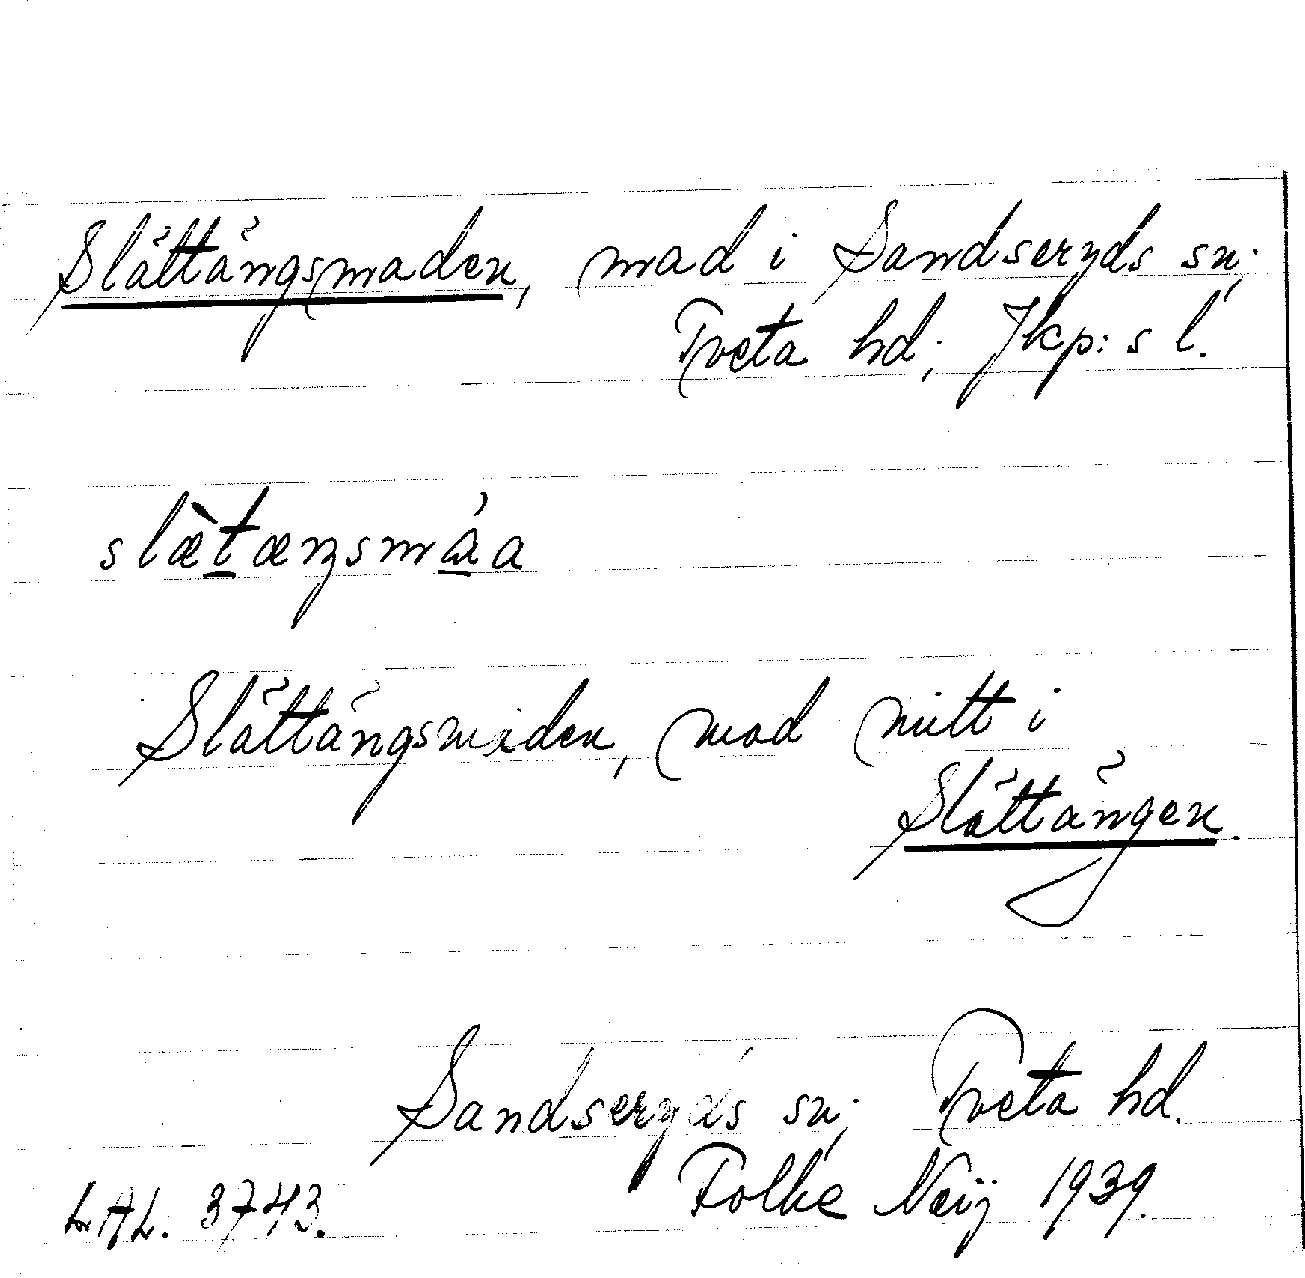 Slättängsmaden, mad i Sandseryds sn;
Tveta hd; Jkp:s l.
slæ̀tæŋsmåa
Slättängsmaden, mad mitt i
Slättängen.
Sandseryds sn; Tveta hd.
Folke Neij 1939.
LAL. 3743.